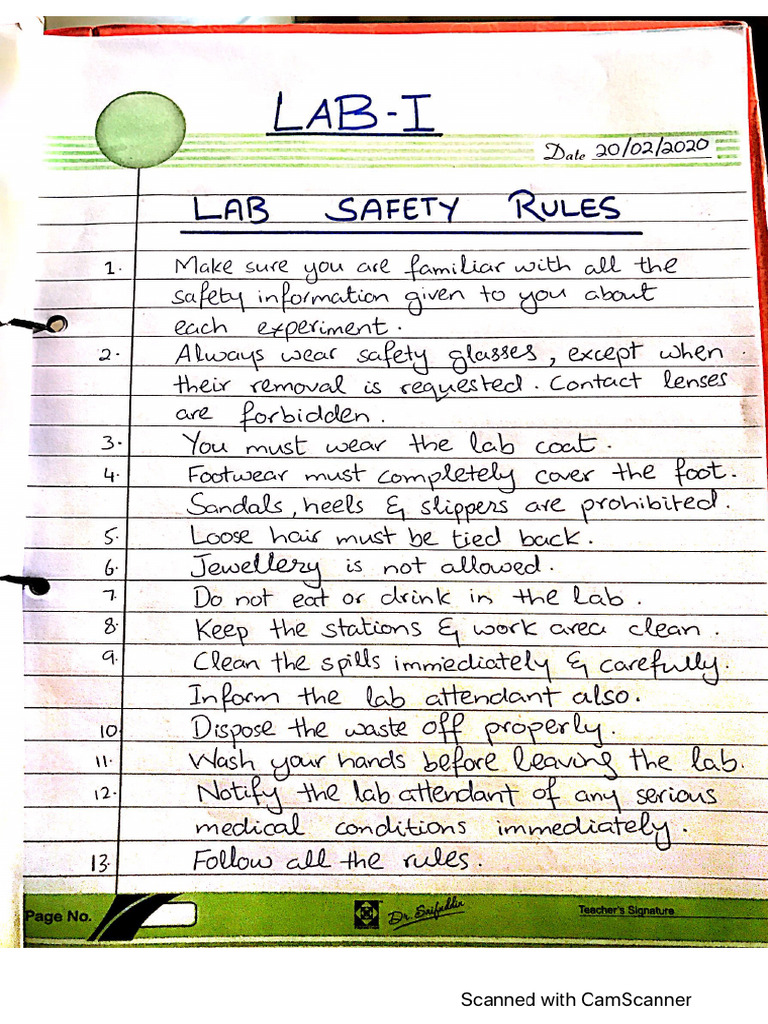 LAB-I
Date 20/02/2020
LAB SAFETY RULES
1. Make sure you are familiar with all the
safety information given to you about
each experiment.
2. Always wear safety glasses, except when
their removal is requested. Contact lenses
are forbidden.
3. You must wear the lab coat.
4. Footwear must completely cover the foot.
Sandals, heels & slippers are prohibited.
5. Loose hair must be tied back.
6. Jewellery is not allowed.
7. Do not eat or drink in the lab.
8. Keep the stations & work area clean.
9. Clean the spills immediately & carefully.
Inform the lab attendant also.
10 Dispose the waste off properly.
11. Wash your hands before leaving the lab.
12. Notify the lab attendant of any serious
medical conditions immediately.
13. Follow all the rules.
Page No. Dr. Saifuddin Teacher's Signature
Scanned with CamScanner